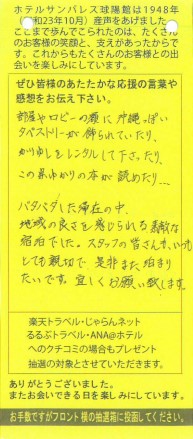 ホテルサンパレス球陽館は1948年
(昭和23年10月)産声をあげました。
ここまで歩んでこられたのは、たくさん
のお客様の笑顔と、支えがあったからで
す。これからもたくさんのお客様との出
会いを楽しみにしています。
ぜひ皆様のあたたかな応援の言葉や
感想をお伝え下さい。
部屋やロビーの扉に沖縄っぽい
タペストリーが飾られていたり、
かりゆしをレンタルして下さったり、
この島ゆかりの本が読めたり…、
バタバタした滞在の中、
地域の良さを感じられる素敵な
宿泊でした。スタッフの皆さんも、いつも
とても親切で、是非また泊まり
たいです。宜しくお願い致します。
楽天トラベル・じゃらんネット
るるぶトラベル・ANA@ホテル
へのクチコミの場合もプレゼント
抽選の対象とさせていただきます。
ありがとうございました。
またお会いできる日を楽しみにしています。
お手数ですがフロント横の抽選箱に投函してください。